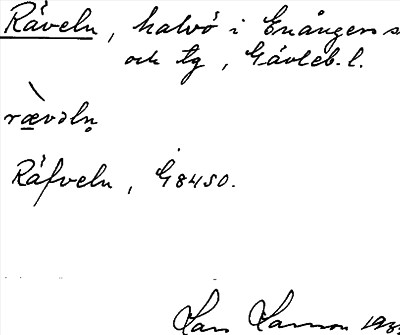 Räveln, halvö i Enångers s
och tg, Gävleb. l.
rævəln̥
Räfveln, G 84 SO.
Lars Larsson 193